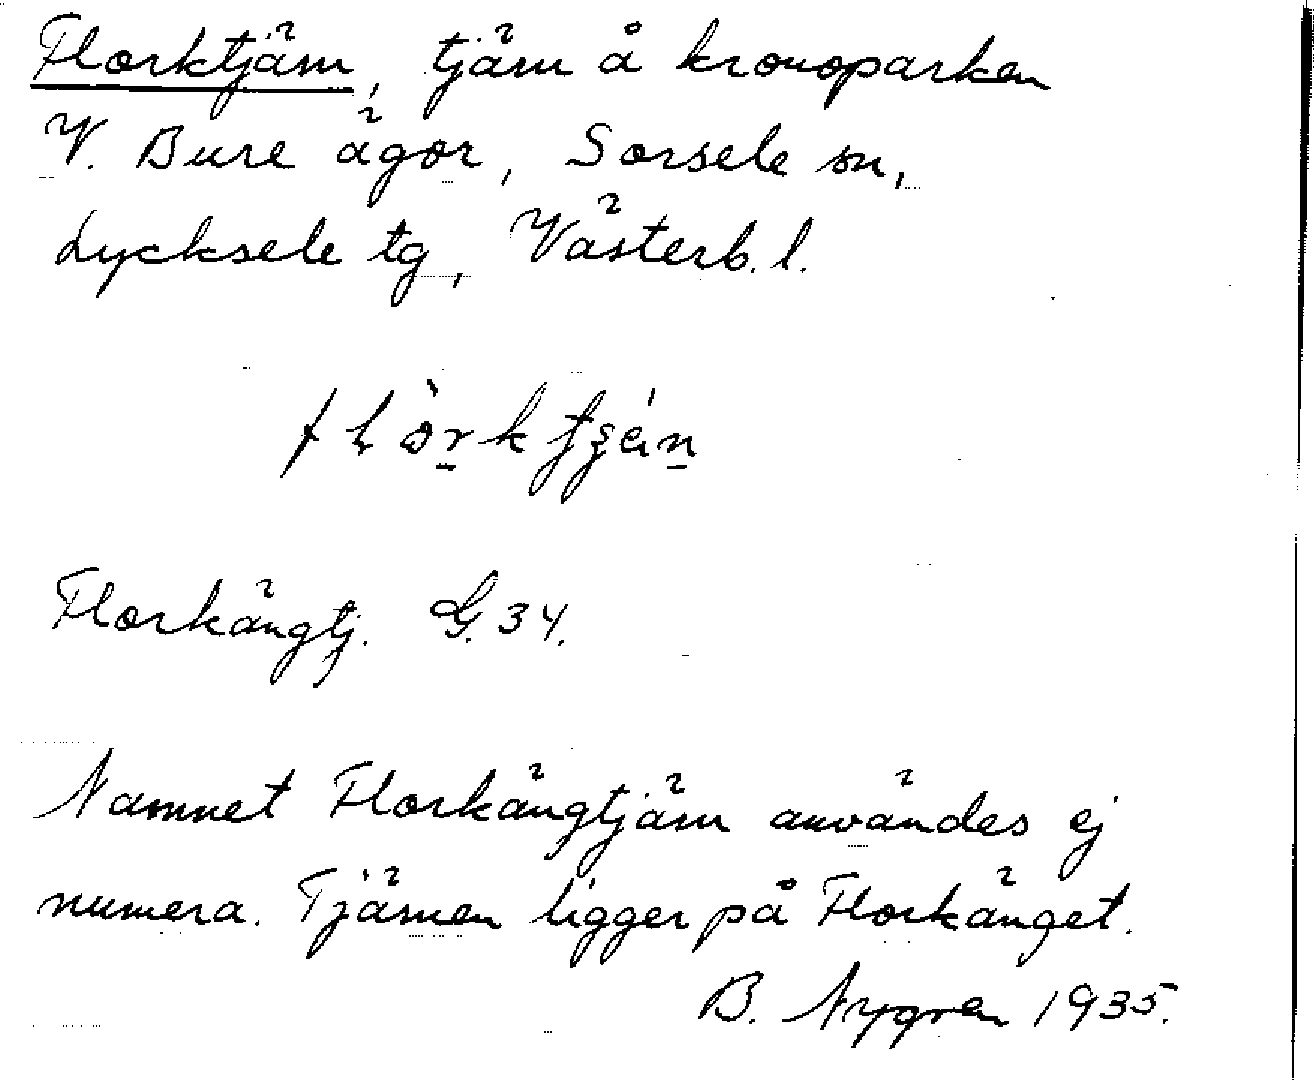 Florktjärn, tjärn å kronoparken
V. Bure ägor, Sorsele sn,
Lycksele tg, Västerb. l.
Florkängtj. G. 34.
Namnet Florkängtjärn användes ej
numera. Tjärnen ligger på Florkänget.
B. Nygren 1935.